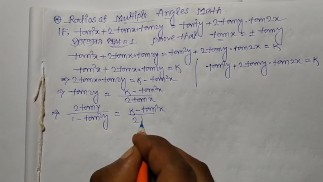 ⊛ Ratios of Multiple Angles Math
IF. tan²x + 2tanx·tan2y = tan²y + 2tany·tan2x
prove that tanx = ± tany
tan²x + 2tanx·tan2y = tan²y + 2tany·tan2x = K
tan²x + 2tanx·tan2y = K, tan²y + 2tany·tan2x = K
⇒ 2tanx·tan2y = K - tan²x
⇒ tan2y = K - tan²x / 2tanx
⇒ 2tany / 1 - tan²y = K - tan²x / 2